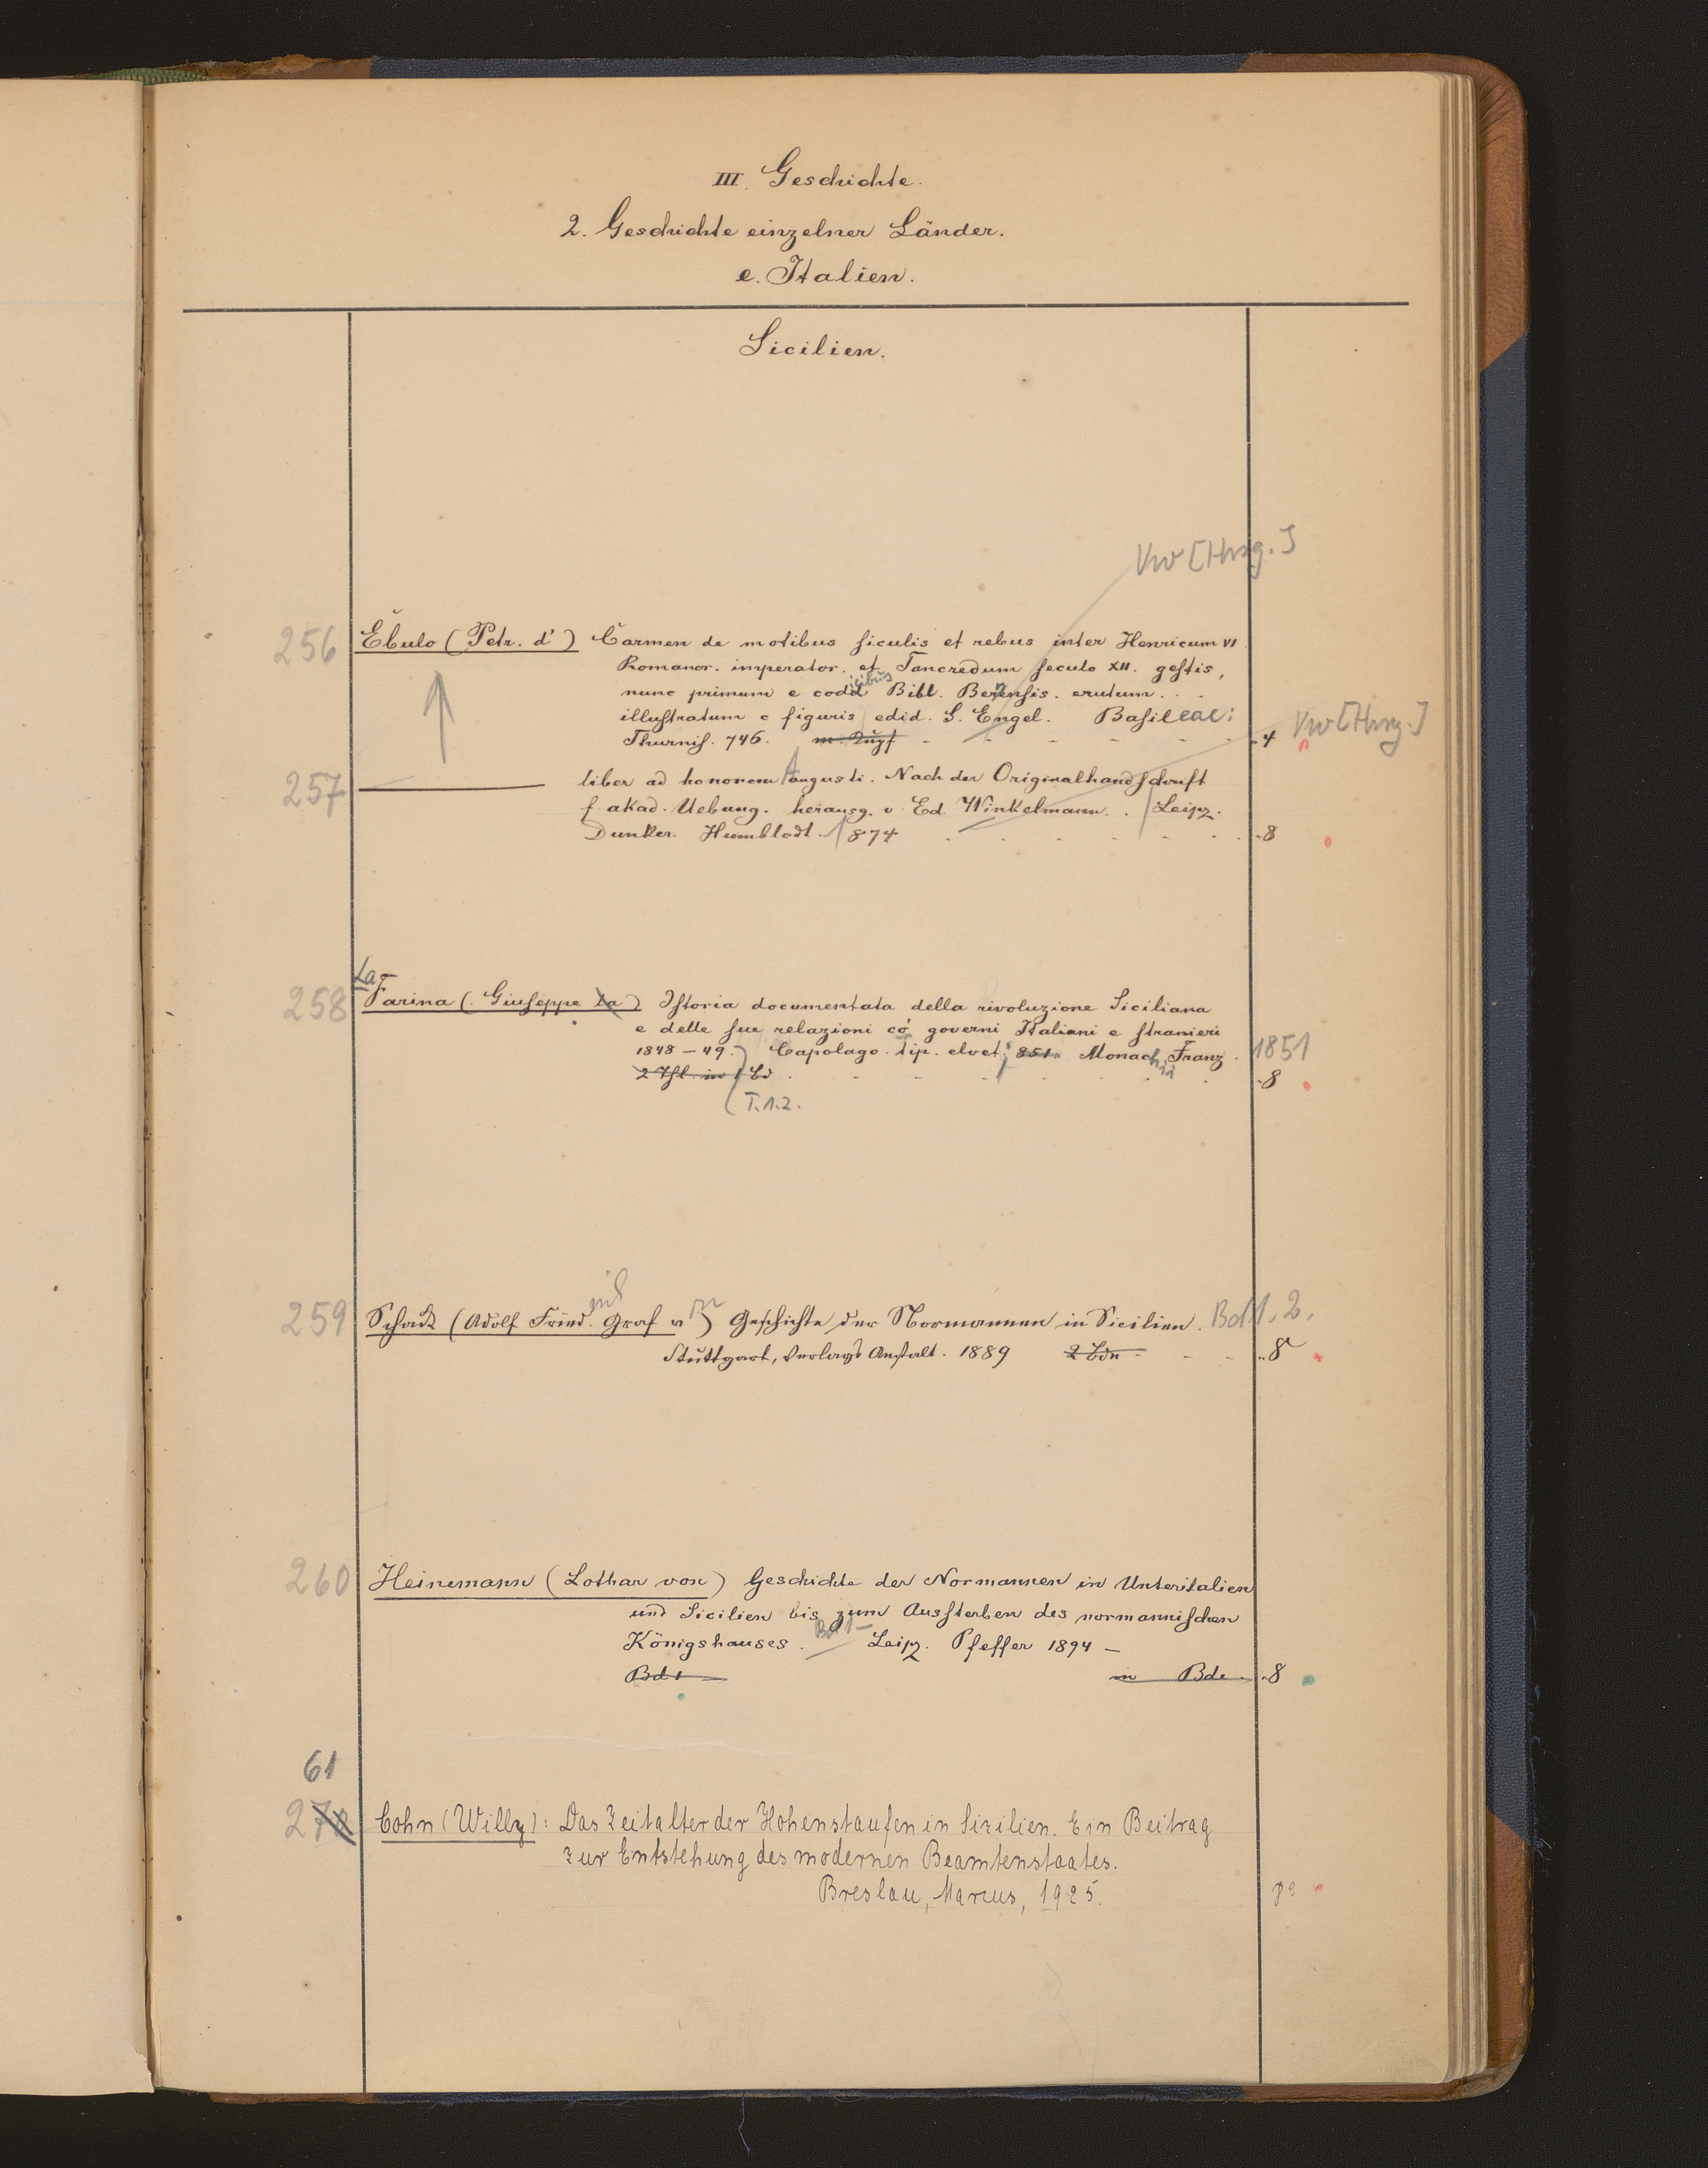 III. Geschichte.
2. Geschichte einzelner Länder.
e. Italien.
Sicilien.
Vw [Hrsg.]
256 Ebulo (Petr. d') Carmen de motibus siculis et rebus inter Henricum VI
Romanor. imperator. et Tancredum seculo XII. gestis,
nunc primum e codicibus Bibl. Bernensis. erutum . .
illustratum c figuris edid. S. Engel. Basileae:
Thurnis. 746. - - - - - 4 Vw [Hrsg.]
257 ——— liber ad honorem Augusti. Nach der Originalhandschrift
f. akad. Uebung. herausg. v. Ed. Winkelmann. . Leipz.
Dunker. Humblodt. 1874 - - - - - 8
258 La Farina (Giuseppe La) Istoria documentata della rivoluzione Siciliana
e delle sue relazioni co' governi Italiani e stranieri
1848-49. Capolago. tip. elvet; 851. Monachii Franz. 1851
2 Thl. in 1 Bd . - - - - 8
T. 1.2.
259 Schack (Adolf Fried. Graf v) Geschichte der Normannen in Sicilien. Bd 1. 2.
Stuttgart, Verlags Anstalt. 1889 2 Bdn - - - 8
260 Heinemann (Lothar von) Geschichte der Normannen in Unteritalien
und Sicilien bis zum Aussterben des normannischen
Königshauses. Bd 1- Leipz. Pfeffer 1894 –
Bd 1 in Bde. 8
61
27 Cohn (Willy): Das Zeitalter der Hohenstaufen in Sizilien. Ein Beitrag
zur Entstehung des modernen Beamtenstaates.
Breslau, Marcus, 1925. 8°